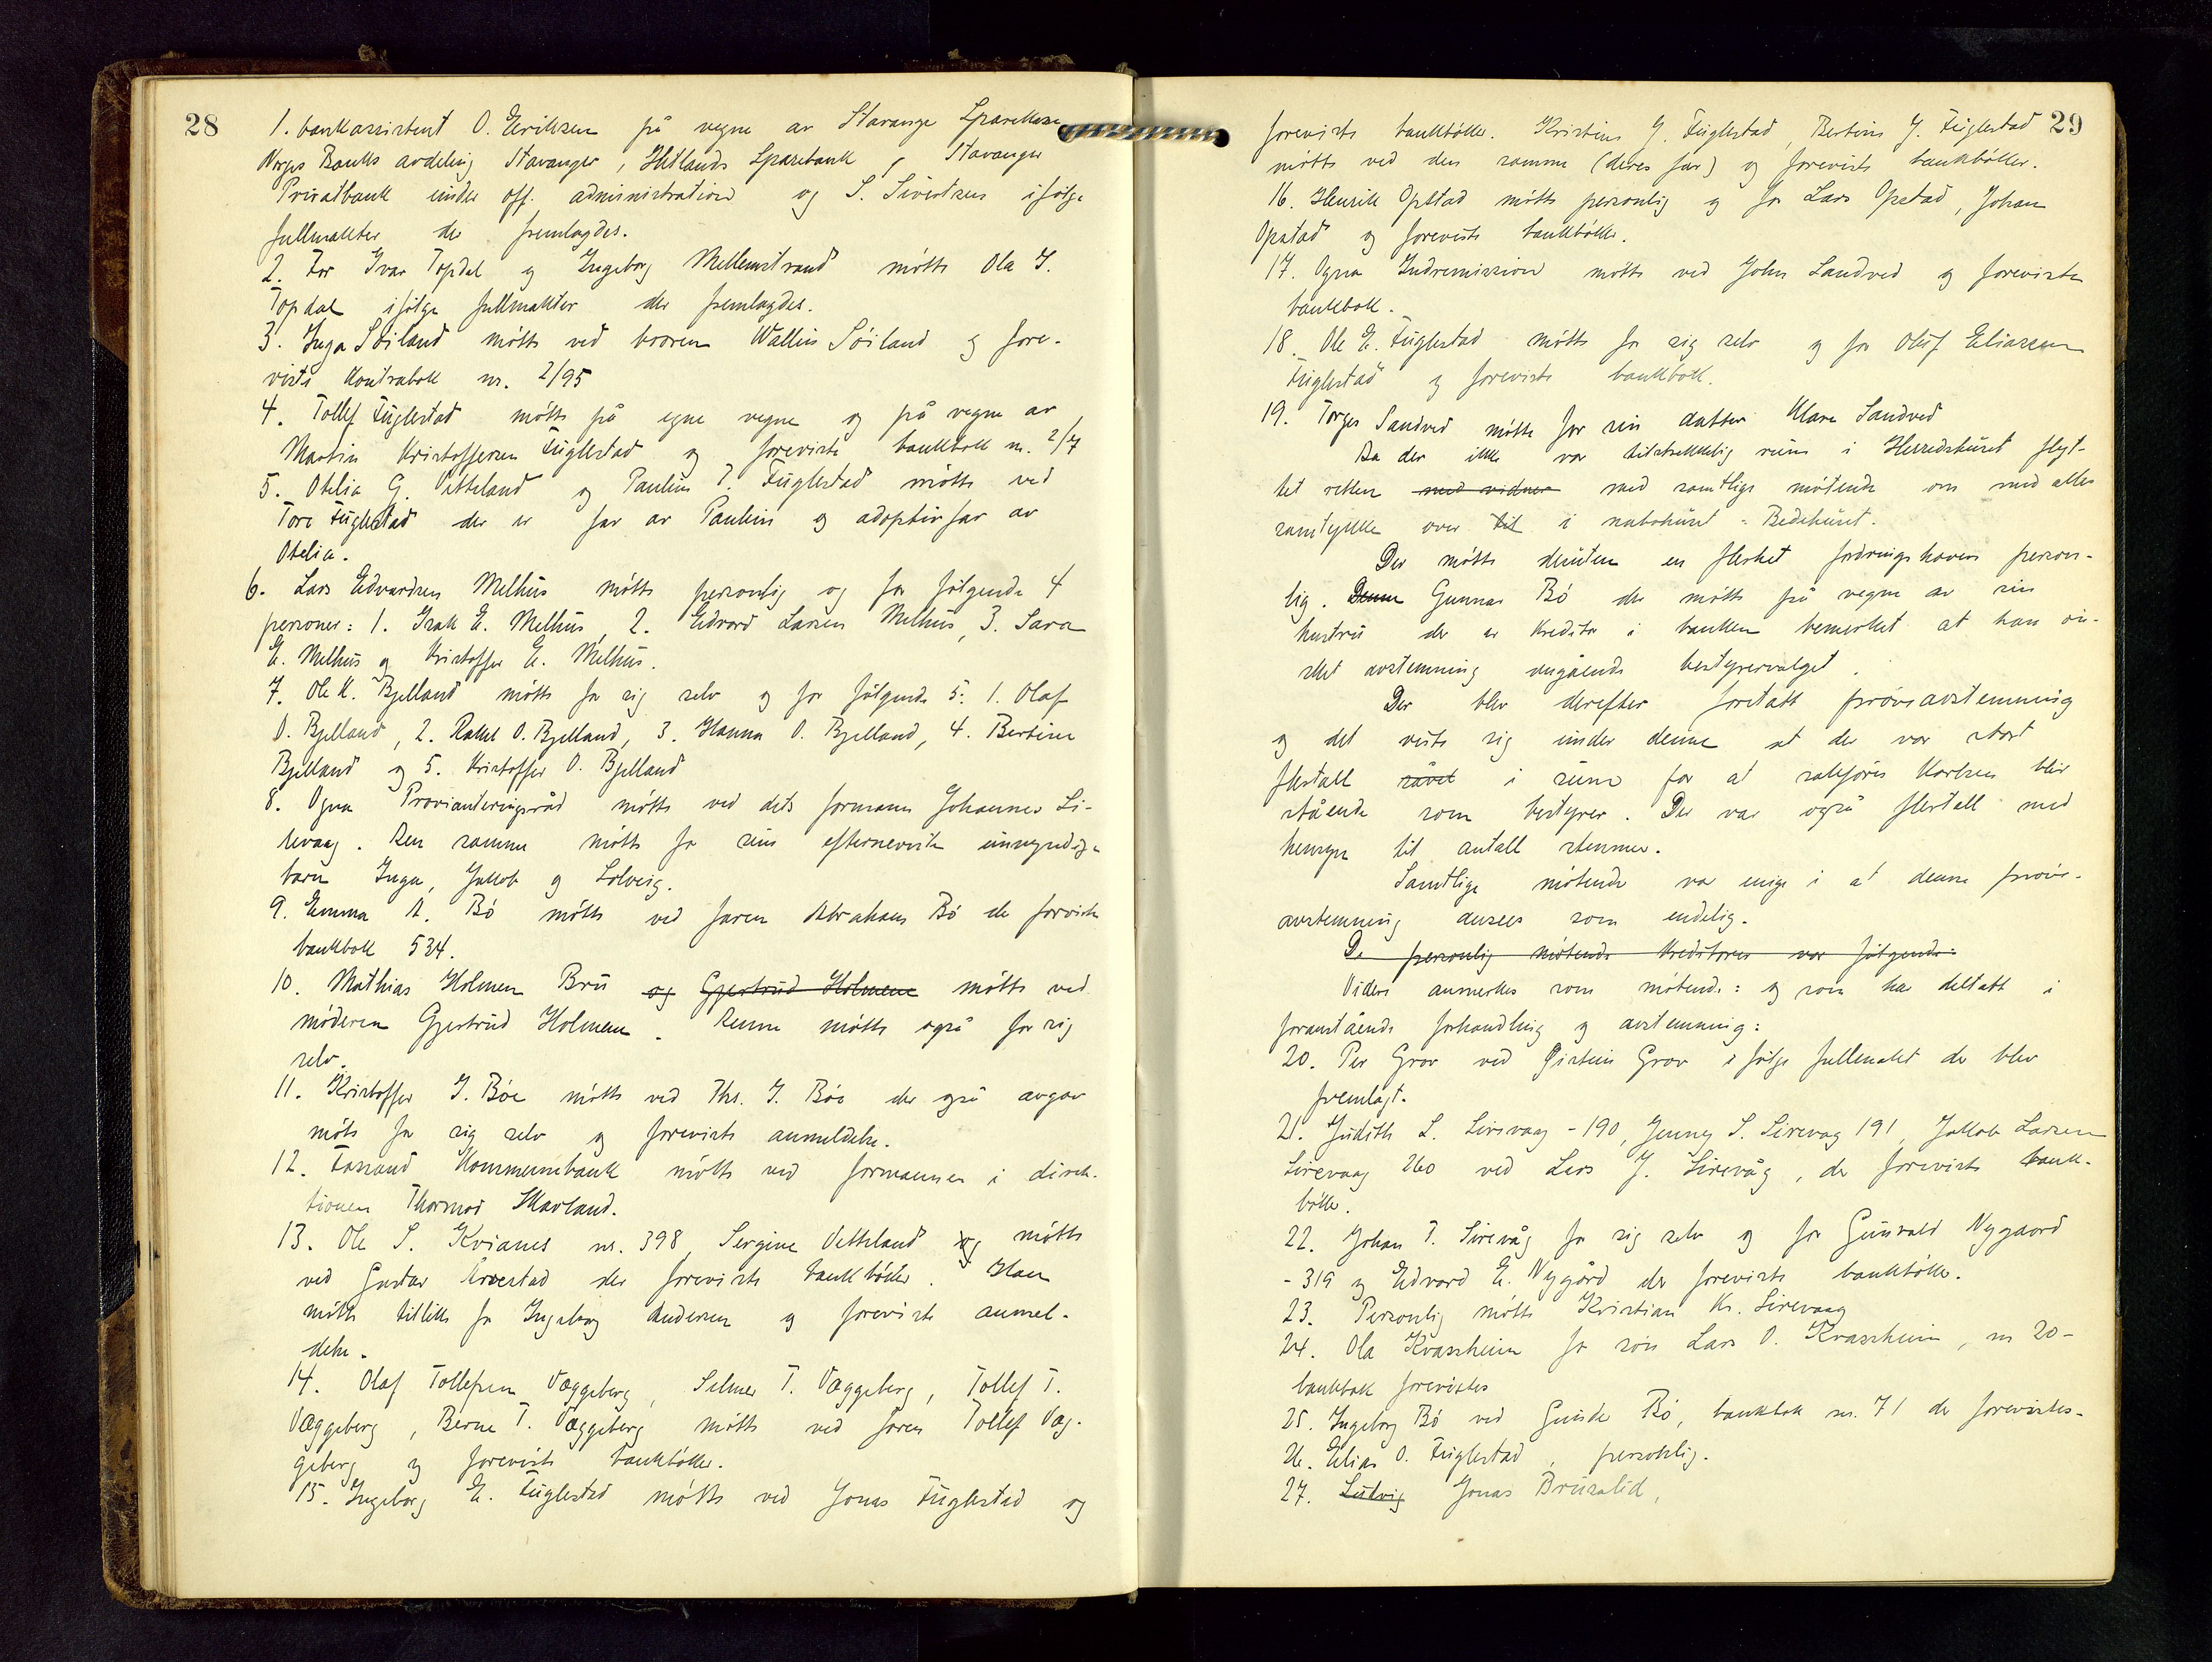 28
1. bankassistent O. Eriksen på vegne av Stavanger Sparekasse
Norges Banks avdeling Stavanger, Hetlands Sparebank, Stavanger
Privatbank under off. administration og S. Sivertsen ifølge
fullmakter der fremlagdes.
2. For Ivar Topdal og Ingeborg Mellemstrand møtte Ola I.
Topdal ifølge fullmakter der fremlagdes.
3. Inga Søiland møtte ved broren Wallin Søiland og fore-
viste kontrabok nr. 2/95
4. Tollef Fuglestad møtte på egne vegne og på vegne av
Martin Kristoffersen Fuglestad og foreviste bankbok nr. 2/7
5. Otelia G. Vetteland og Paulin T. Fuglestad møtte ved
Tore Fuglestad der er far av Paulin og adoptivfar av
Otelia.
6. Lars Edvardsen Melhus møtte personlig og for følgende 4
personer: 1. Isak E. Melhus, 2. Edvard Larsen Melhus, 3. Sara
E. Melhus og Kristoffer E. Melhus.
7. Ole K. Bjelland møtte for sig selv og for følgende 5: 1. Olaf
O. Bjelland, 2. Rakel O. Bjelland, 3. Hanna O. Bjelland, 4. Bertine
Bjelland og 5. Kristoffer O. Bjelland
8. Ogna Provianteringsråd møtte ved dets formann Johannes Si-
revaag. Den samme møtte for sine efternevnte umyndige
barn Inga, Jakob og Solveig.
9. Emma A. Bø møtte ved faren Abraham Bø der foreviste
bankbok 534.
10. Mathias Holmen Bru og Gjertrud Holmene møtte ved
moderen Gjertrud Holmene. Denne møtte også for sig
selv.
11. Kristoffer I. Bøe møtte ved Ths. I. Bøe der også avgav
møte for sig selv og foreviste anmeldelse.
12. Fossand Kommunebank møtte ved formannen i direk-
tionen Thormod Skarland.
13. Ole S. Kvianes nr. 398, Sergine Vetteland og møtte
ved Gustav Årrestad der foreviste bankbøker. Han
møtte tillike for Ingeborg Andersen og foreviste anmel-
delse.
14. Olaf Tollefsen Væggeberg, Selmer T. Væggeberg, Tollef T.
Væggeberg, Berne T. Væggeberg møtte ved faren Tollef Væg-
geberg og foreviste bankbøker.
15. Ingeborg E. Fuglestad møtte ved Jonas Fuglestad og
29
foreviste bankbøker. Kristine J. Fuglestad, Bertine J. Fuglestad
møtte ved den samme (deres far) og foreviste bankbøker.
16. Henrik Opstad møtte personlig og for Lars Opstad, Johan
Opstad og foreviste bankbøker.
17. Ogna Indremission møtte ved John Sandved og foreviste
bankbok.
18. Ole E. Fuglestad møtte for sig selv og for Oluf Eliassen
Fuglestad og foreviste bankbok.
19. Torger Sandved møtte for sin datter Klara Sandved
Da der ikke var tilstrekkelig rum i Herredshuset flyt-
tet retten med vidner med samtlige møtende om med alles
samtykke over til i nabohuset: Bedehuset.
Der møtte desuten en flerhet fordringshavere person-
lig. Denne Gunnar Bø der møtte på vegne av sin
hustru der er kreditor i banken bemerket at han øn-
sket avstemning angående bestyrervalget.
Der blev derefter foretatt prøveavstemning
og det viste sig under denne at der var stort
flertall såvel i sum for at sakfører Karlsen blir
stående som bestyrer. Der var også flertall med
hensyn til antall stemmer.
Samtlige møtende var enige i at denne prøve-
avstemning ansees som endelig.
De personlig møtende kreditorer var følgende:
Videre anmerkes som møtende: og som har deltatt i
foranstående forhandling og avstemning:
20. Per Grov ved Øistein Grov ifølge fullmakt der blev
fremlagt.
21. Judith L. Sirevaag - 190, Jenny S. Sirevag 191, Jakob Larsen
Sirevaag 260 ved Lars J. Sirevåg, der foreviste bank-
bøker.
22. Johan T. Sirevåg for sig selv og for Gunvald Nygaard
- 319 og Edvard E. Nygård der foreviste bankbøker.
23. Personlig møtte Kristian Kr. Sirevaag
24. Ola Kvassheim for søn Lars O. Kvassheim, nr 20-
bankbok forevistes
25. Ingeborg Bø ved Gunder Bø, bankbok nr. 71 der forevistes.
26. Elias O. Fuglestad, personlig.
27. Ludvig Jonas Brusalid,